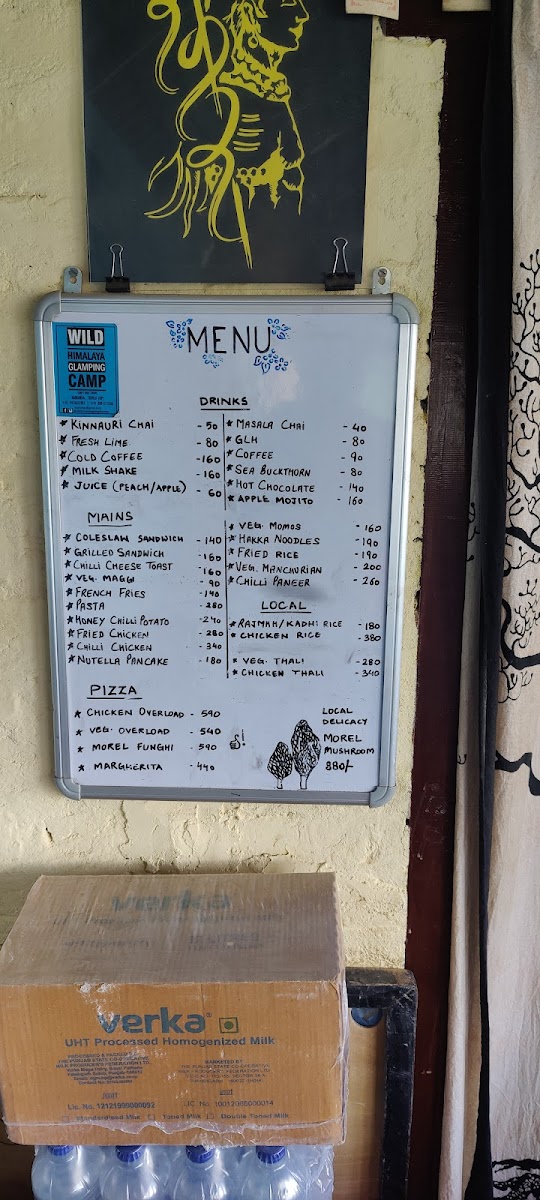 WILD
HIMALAYA
GLAMPING
CAMP
MENU
DRINKS
* KINNAURI CHAI - 50
* FRESH LIME - 80
* COLD COFFEE - 160
* MILK SHAKE - 160
* JUICE (PEACH/APPLE) - 60
* MASALA CHAI - 40
* GLH - 80
* COFFEE - 90
* SEA BUCKTHORN - 80
* HOT CHOCOLATE - 140
* APPLE MOJITO - 160
MAINS
* COLESLAW SANDWICH - 140
* GRILLED SANDWICH - 160
* CHILLI CHEESE TOAST - 160
* VEG. MAGGI - 90
* FRENCH FRIES - 140
* PASTA - 280
* HONEY CHILLI POTATO - 240
* FRIED CHICKEN - 280
* CHILLI CHICKEN - 340
* NUTELLA PANCAKE - 180
* VEG. MOMOS - 160
* HAKKA NOODLES - 190
* FRIED RICE - 190
* VEG. MANCHURIAN - 200
* CHILLI PANEER - 260
LOCAL
* RAJMAH/KADHI RICE - 180
* CHICKEN RICE - 380
* VEG. THALI - 280
* CHICKEN THALI - 340
PIZZA
* CHICKEN OVERLOAD - 590
* VEG. OVERLOAD - 540
* MOREL FUNGHI - 590
* MARGHERITA - 440
LOCAL
DELICACY
MOREL
MUSHROOM
880/-
verka
UHT Processed Homogenized Milk
Lic. No. 12121999000092
LIC. No. 10012063000014
Standardised Milk Toned Milk Double Toned Milk